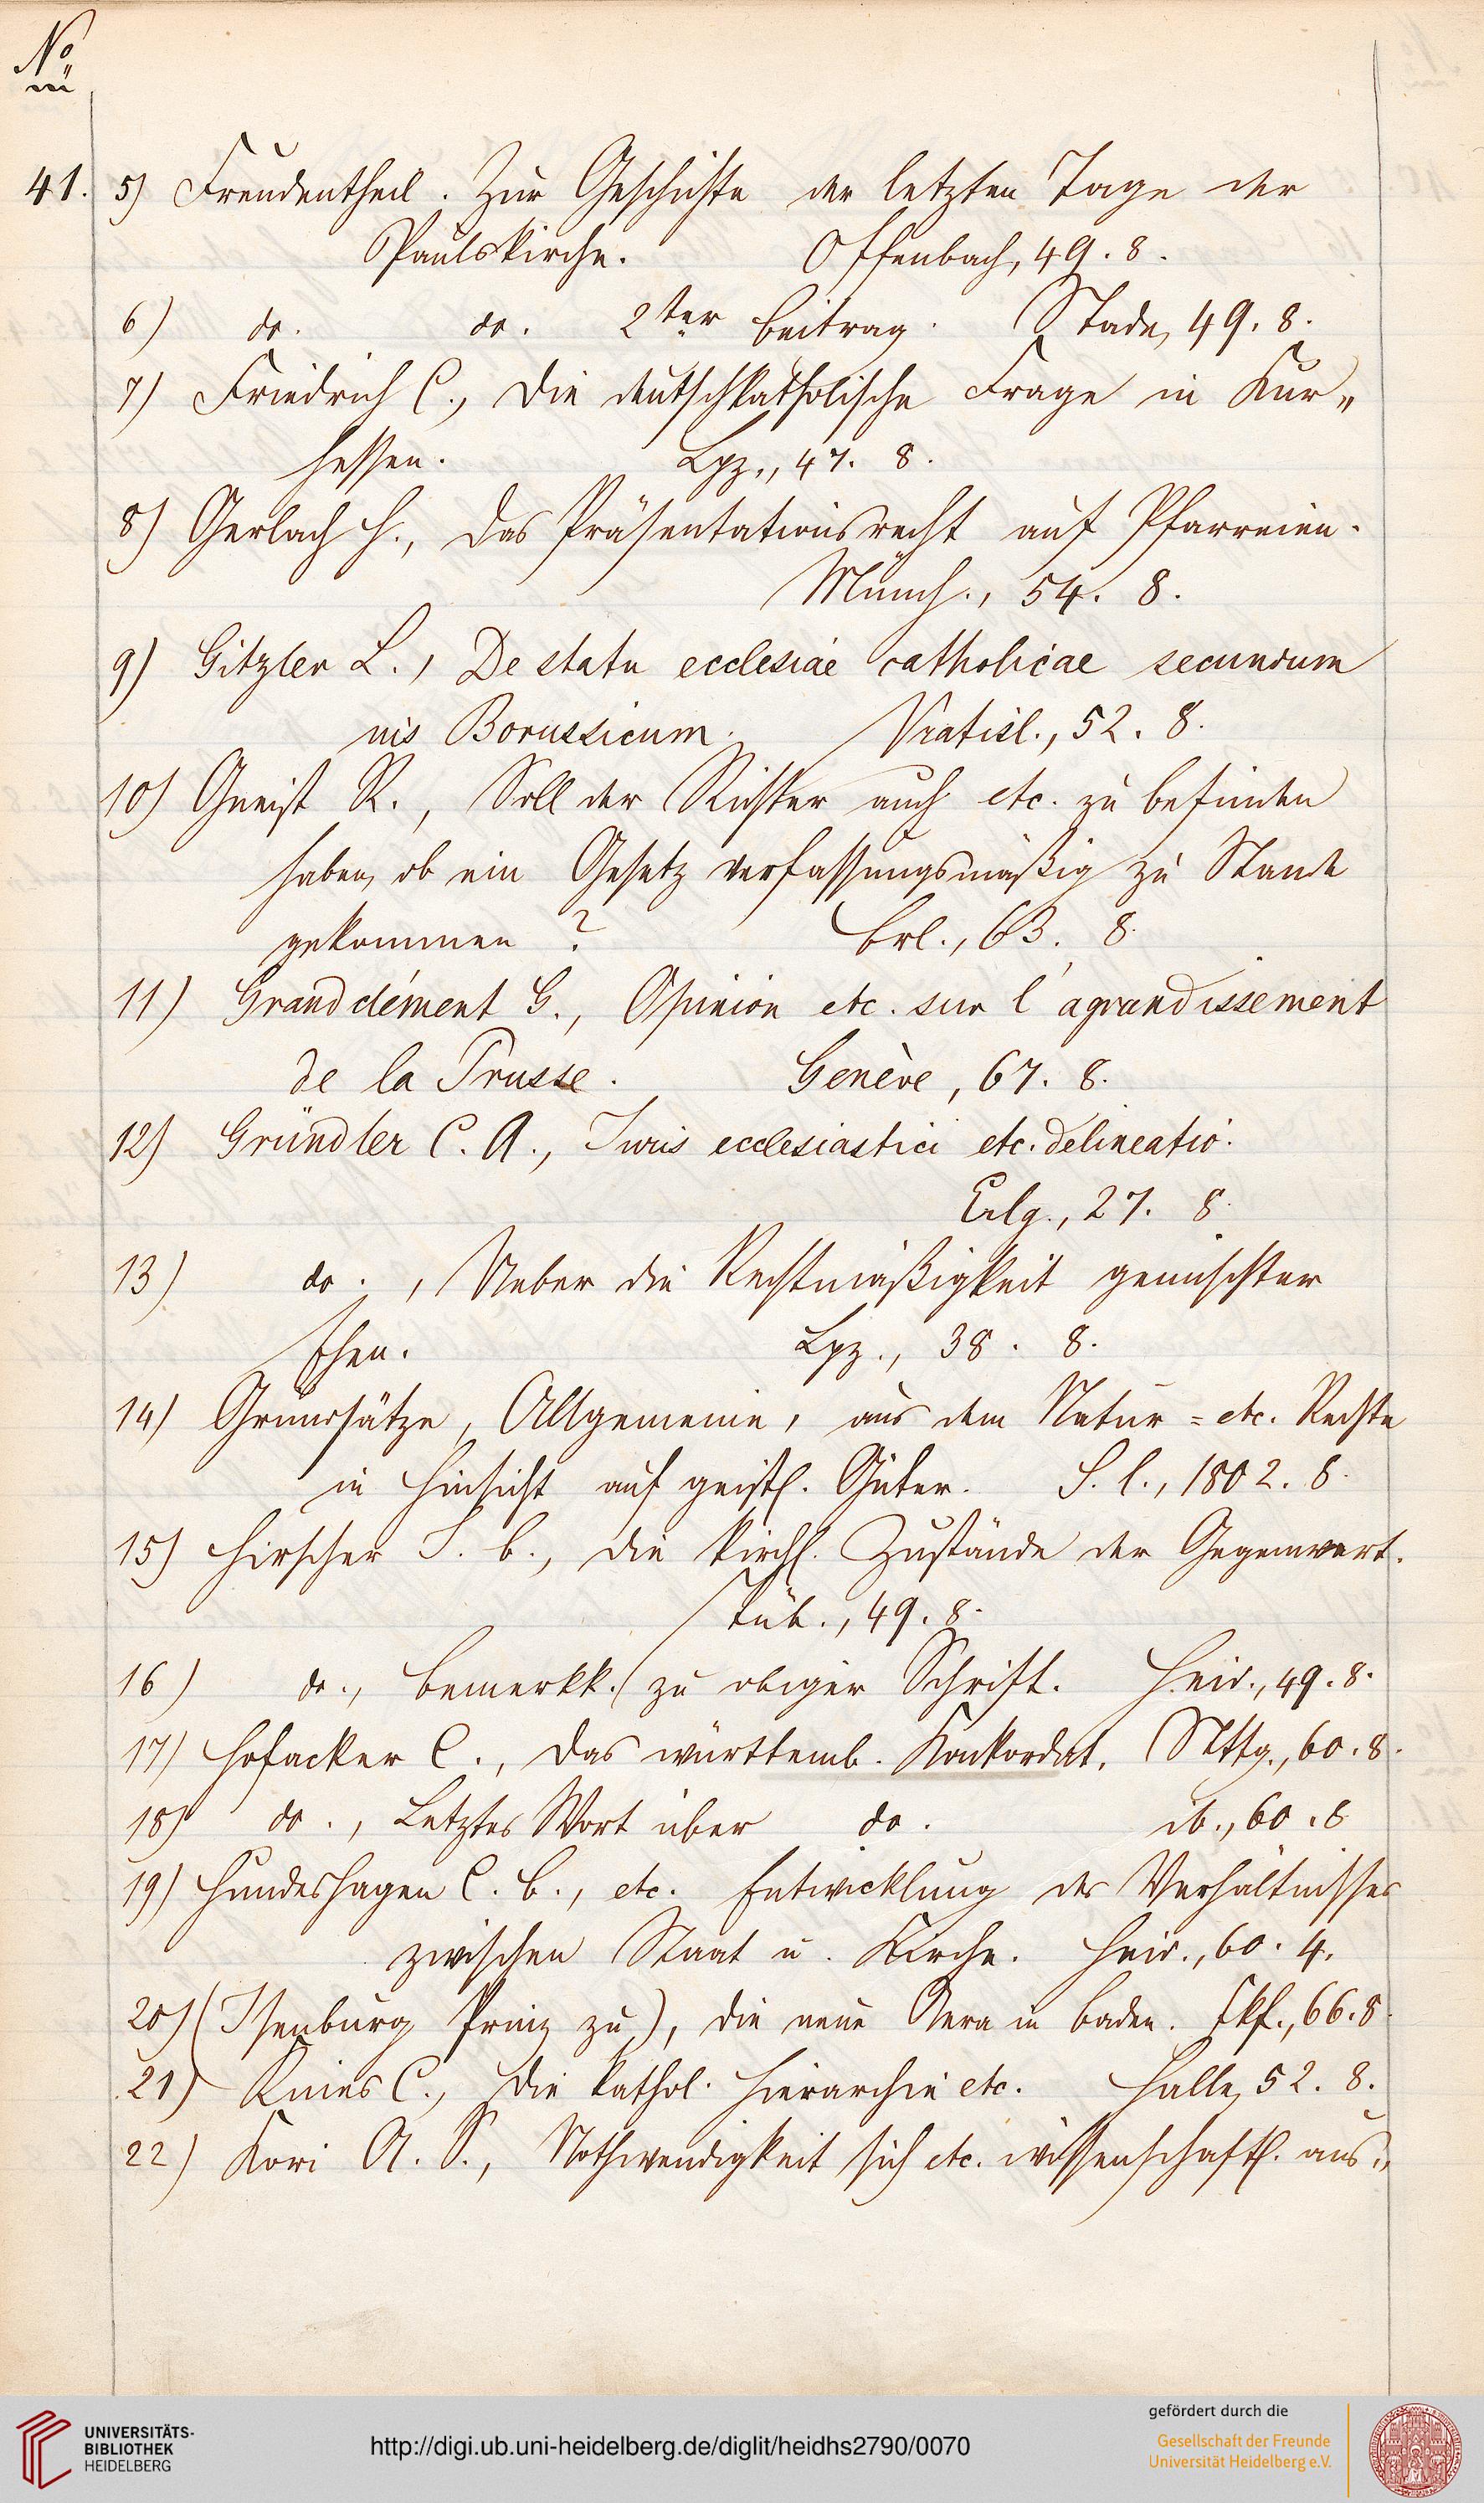 No
41. 5) Freudentheil. Zur Geschichte der letzten Tage der
Paulskirche. Offenbach, 49. 8.
6) do. do. 2ter Beitrag. Stade, 49. 8.
7) Friedrich C., Die deutschkatholische Frage in Kur„
hessen. Lpz., 47. 8.
8) Gerlach H., Das Präsentationsrecht auf Pfarreien.
Münch., 54. 8.
9) Gitzler L., De statu ecclesiae catholicae secundum
ius Borussicum. Vratisl., 52. 8.
10) Gneist R., Soll der Richter auch etc. zu befinden
haben, ob ein Gesetz verfassungsmäßig zu Stande
gekommen? Brl., 63. 8.
11) Grandclément G., Opinion etc. sur l'agrandissement
de la Prusse. Genève, 67. 8.
12) Gründler C. A., Juris ecclesiastici etc. delineatio.
Erlg., 27. 8.
13) do., Ueber die Rechtmäßigkeit gemischter
Ehen. Lpz., 38. 8.
14) Grundsätze, Allgemeine, aus dem Natur = etc. Rechte
in Hinsicht auf geistl. Güter. S. l., 1802. 8.
15) Hirscher J. B., Die kirchl. Zustände der Gegenwart.
Tüb., 49. 8.
16) do., Bemerkk. zu obiger Schrift. Heid., 49. 8.
17) Hofacker C., Das württemb. Konkordat. Sttg., 60. 8.
18) do., Letztes Wort über do. ib., 60. 8
19) Hundeshagen C. B., etc. Entwicklung des Verhältnisses
zwischen Staat u. Kirche. Heid., 60. 4.
20) (Isenburg Prinz zu), Die neue Aera in Baden. Fkf., 66. 8.
21) Knies C., Die kathol. Hierarchie etc. Halle, 52. 8.
22) Kori A. S., Nothwendigkeit sich etc. wissenschaftl. aus„
UNIVERSITÄTS-
BIBLIOTHEK
HEIDELBERG
http://digi.ub.uni-heidelberg.de/diglit/heidhs2790/0070
gefördert durch die
Gesellschaft der Freunde
Universität Heidelberg e.V.